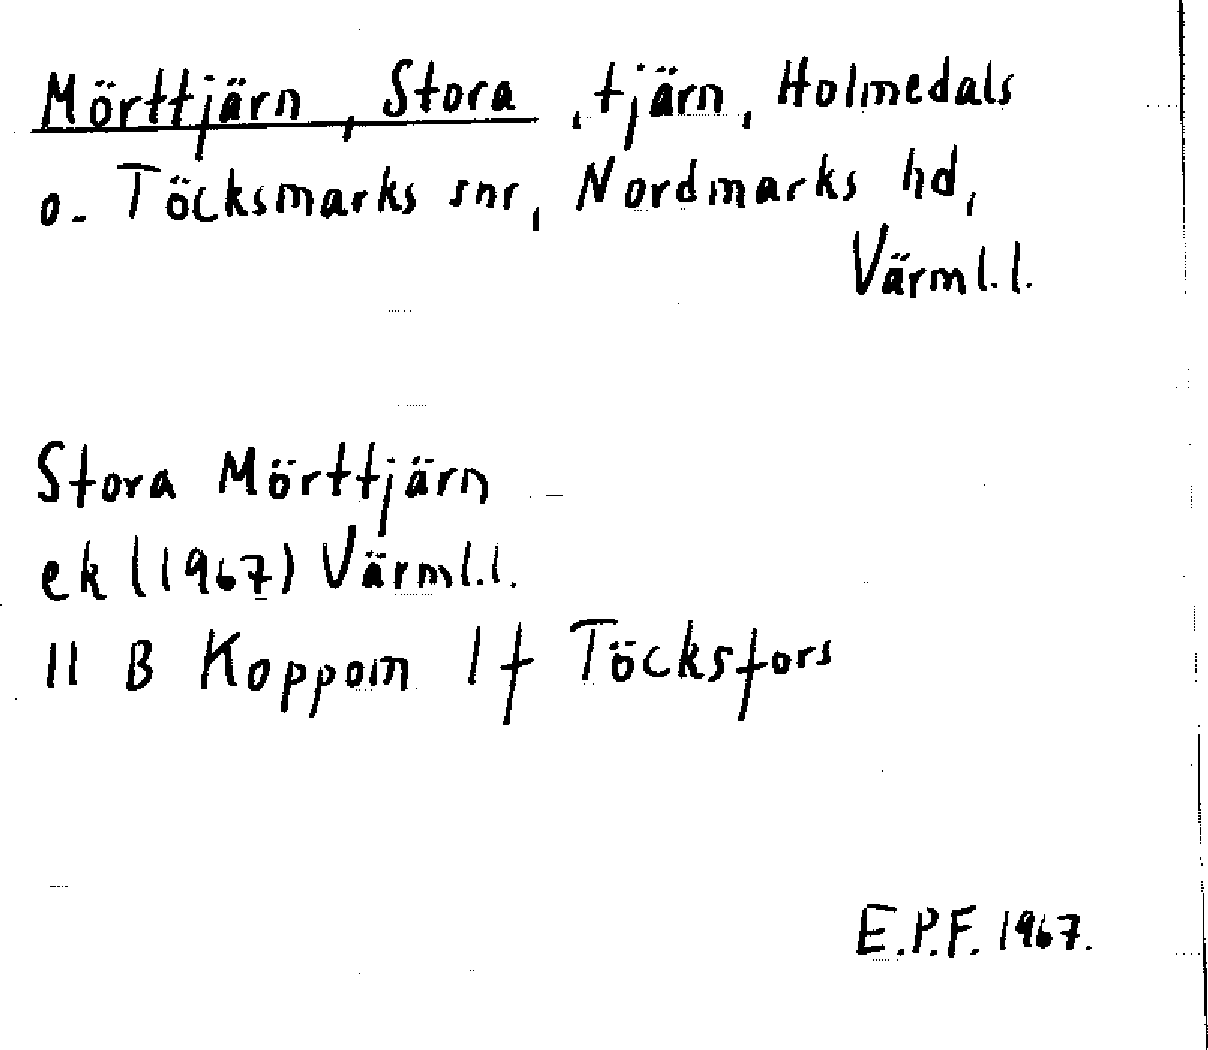 Mörttjärn, Stora, tjärn, Holmedals
o. Töcksmarks snr, Nordmarks hd,
Värml.l.
Stora Mörttjärn
ek (1967) Värml.l.
11 B Koppom 1 f Töcksfors
E.P.F. 1967.